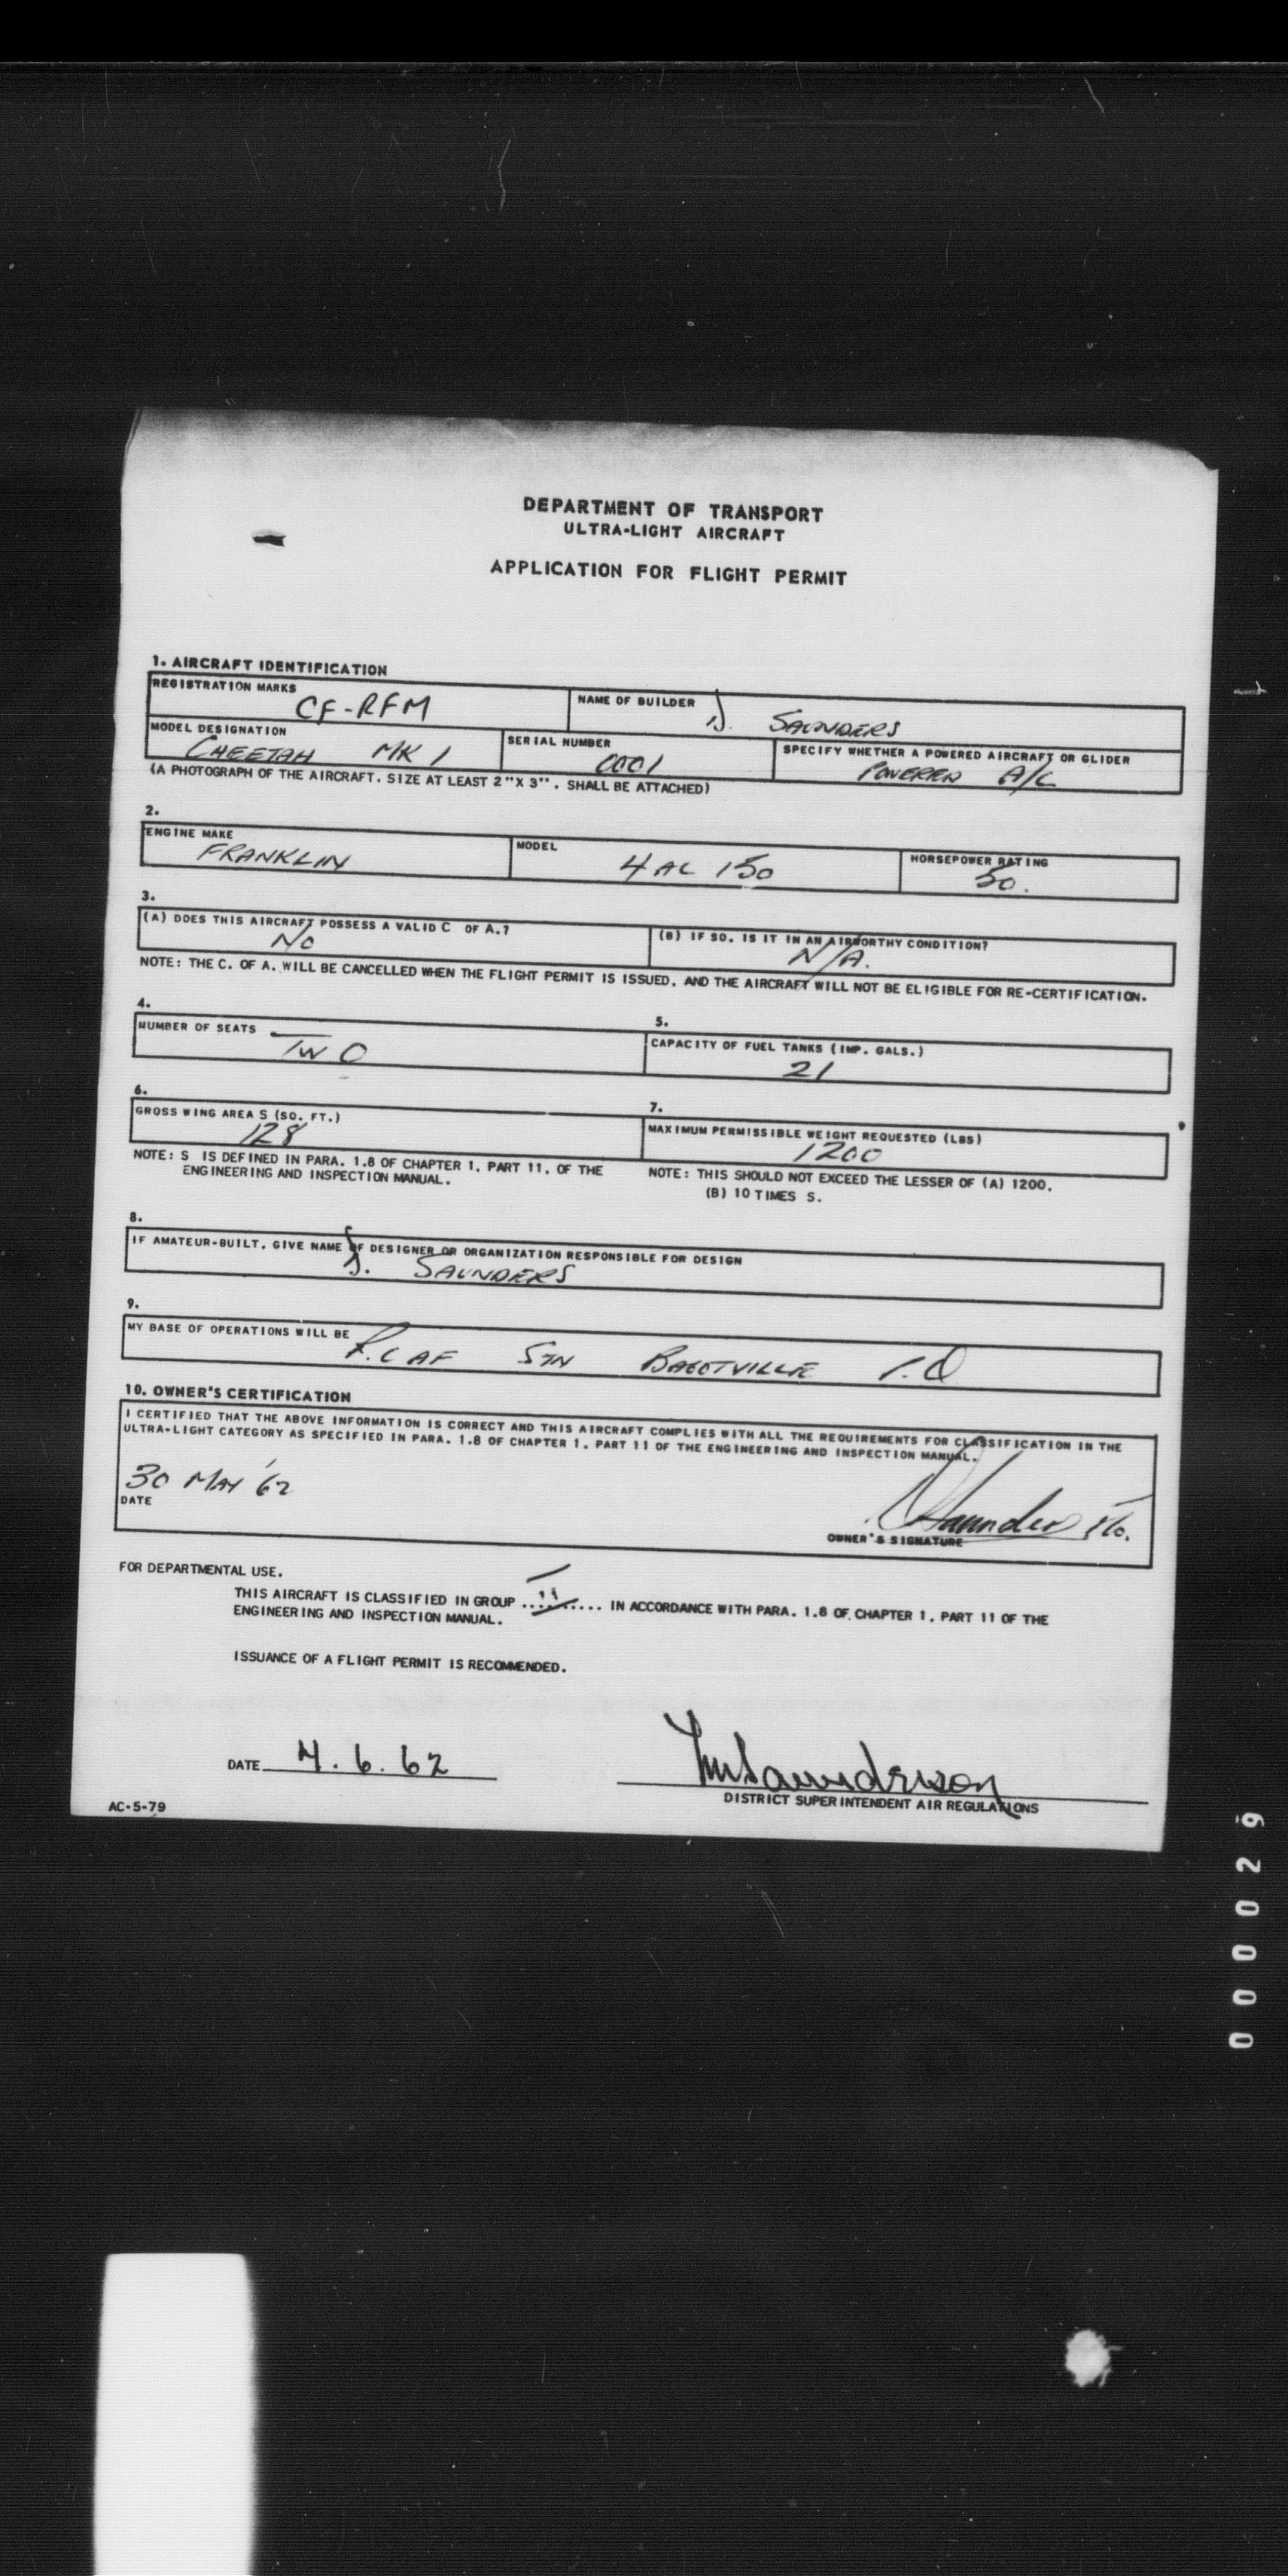 DEPARTMENT OF TRANSPORT
ULTRA-LIGHT AIRCRAFT
APPLICATION FOR FLIGHT PERMIT
1. AIRCRAFT IDENTIFICATION
REGISTRATION MARKS CF-RFM NAME OF BUILDER SAUNDERS
MODEL DESIGNATION CHEETAH MK 1 SERIAL NUMBER 0001 SPECIFY WHETHER A POWERED AIRCRAFT OR GLIDER POWERED A/C
(A PHOTOGRAPH OF THE AIRCRAFT. SIZE AT LEAST 2"X 3". SHALL BE ATTACHED)
2.
ENGINE MAKE FRANKLIN MODEL 4 AC 150 HORSEPOWER RATING 50.
3.
(A) DOES THIS AIRCRAFT POSSESS A VALID C OF A.? NO (B) IF SO. IS IT IN AN AIRWORTHY CONDITION? N/A.
NOTE: THE C. OF A. WILL BE CANCELLED WHEN THE FLIGHT PERMIT IS ISSUED. AND THE AIRCRAFT WILL NOT BE ELIGIBLE FOR RE-CERTIFICATION.
4. 5.
NUMBER OF SEATS TWO CAPACITY OF FUEL TANKS (IMP. GALS.) 21
6. 7.
GROSS WING AREA S (SQ. FT.) 128 MAXIMUM PERMISSIBLE WEIGHT REQUESTED (LBS) 1200
NOTE: S IS DEFINED IN PARA. 1.8 OF CHAPTER 1. PART 11. OF THE NOTE: THIS SHOULD NOT EXCEED THE LESSER OF (A) 1200.
ENGINEERING AND INSPECTION MANUAL. (B) 10 TIMES S.
8.
IF AMATEUR-BUILT. GIVE NAME OF DESIGNER OR ORGANIZATION RESPONSIBLE FOR DESIGN
SAUNDERS
9.
MY BASE OF OPERATIONS WILL BE R.CAF STN BAGOTVILLE P.Q
10. OWNER'S CERTIFICATION
I CERTIFIED THAT THE ABOVE INFORMATION IS CORRECT AND THIS AIRCRAFT COMPLIES WITH ALL THE REQUIREMENTS FOR CLASSIFICATION IN THE
ULTRA-LIGHT CATEGORY AS SPECIFIED IN PARA. 1.8 OF CHAPTER 1. PART 11 OF THE ENGINEERING AND INSPECTION MANUAL.
30 MAY '62 Saunders
DATE OWNER'S SIGNATURE
FOR DEPARTMENTAL USE.
THIS AIRCRAFT IS CLASSIFIED IN GROUP .......... IN ACCORDANCE WITH PARA. 1.8 OF CHAPTER 1. PART 11 OF THE
ENGINEERING AND INSPECTION MANUAL.
ISSUANCE OF A FLIGHT PERMIT IS RECOMMENDED.
DATE 4.6.62 Saunderson
DISTRICT SUPERINTENDENT AIR REGULATIONS
AC-5-79
000029